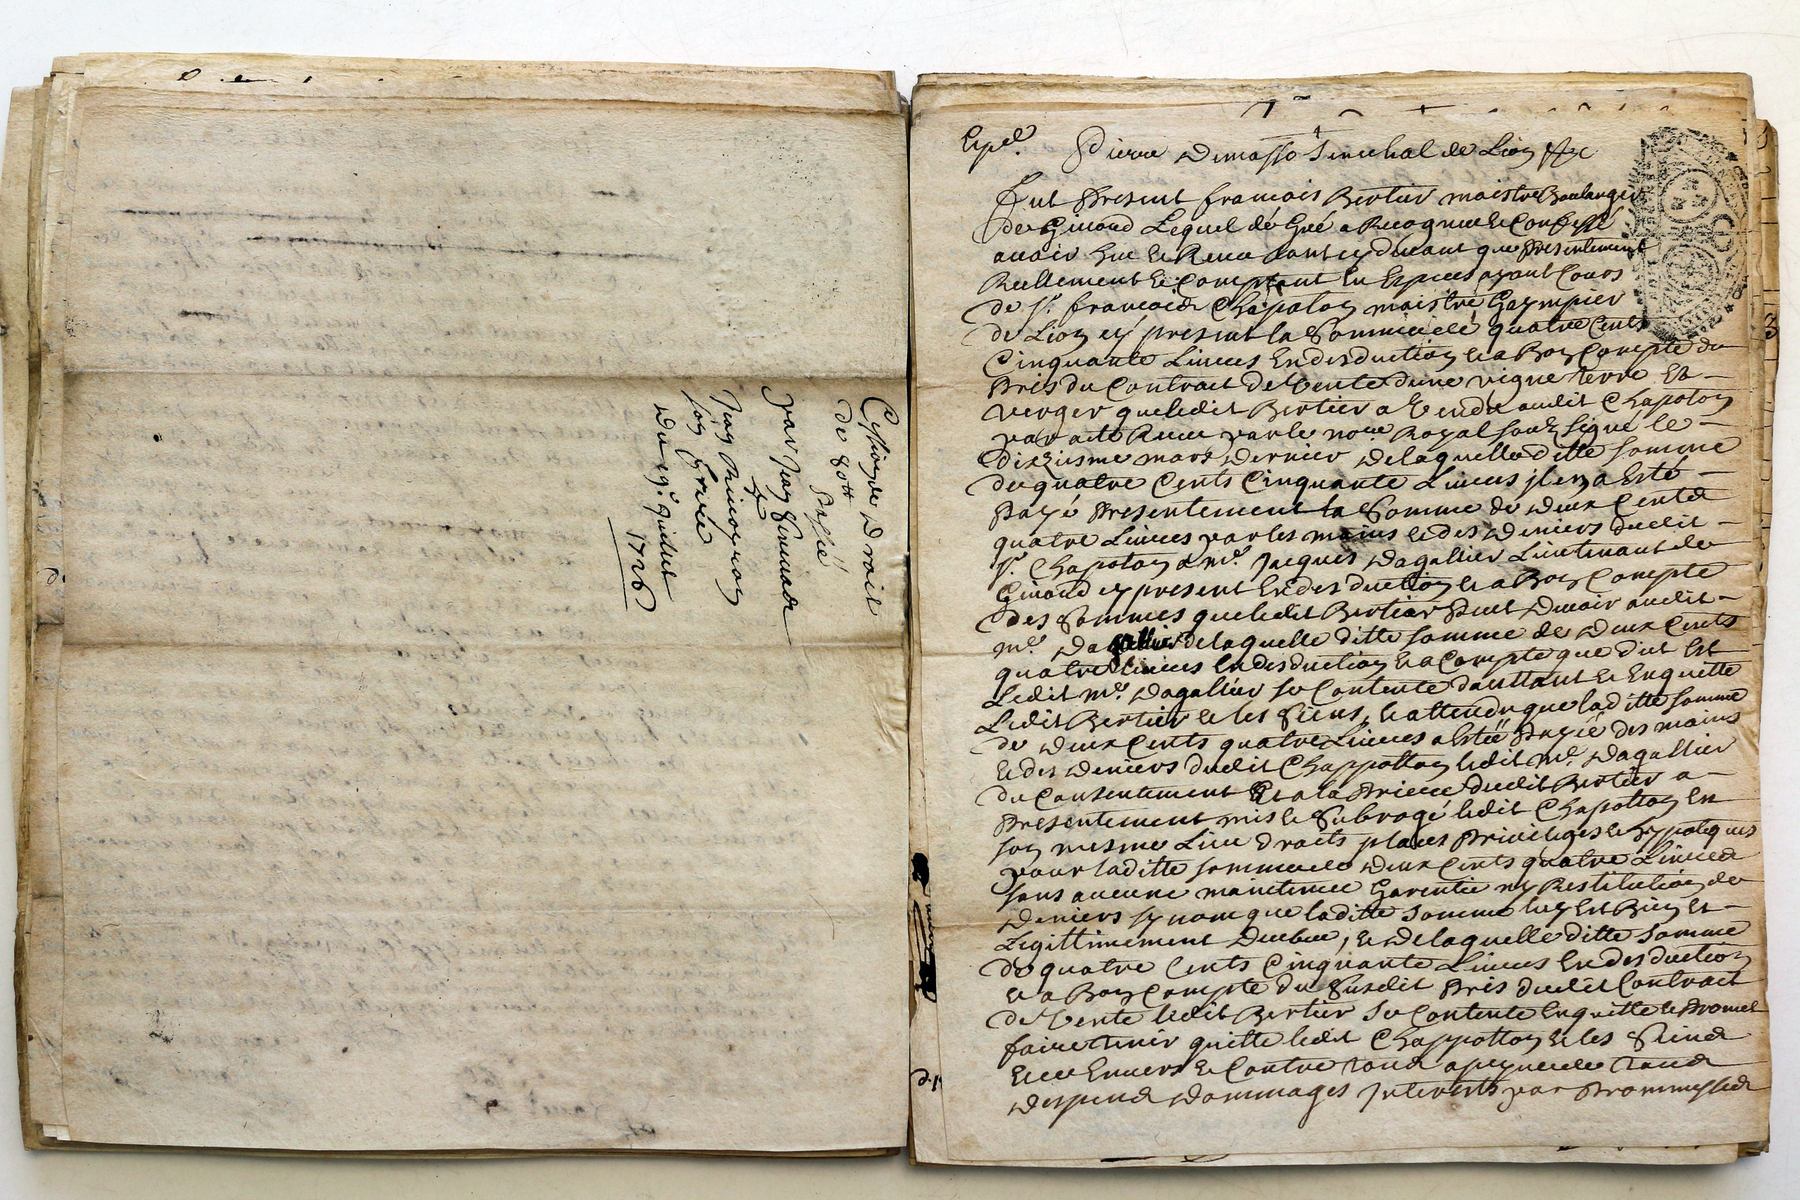 Cession de droit
de 80tt
par Jean
Jean
son frere
du 19e juillet
1726
Expée.
Pierre Demasso Senechal de Lion &c
Fut Present francois Bertier maistre Boulanger
de Givord Lequel de Gré a Recognu et Confessé
avoir Eu et Receu tant cy devant que Presentement
Reellement et Comptant En Espices ayant Cours
de Sr. francois Chapoton maistre
de Lion cy present la Somme de quatre Cents
Cinquante Livres En desduction et a Bon Compte du
Pris du Contract de Vente dune vigne terre Et
verger que ledit Bertier a Vendu audit Chapoton
par acte Receu par le nore Royal soubz signé le
dixiesme mars dernier de laquelle ditte somme
de quatre Cents Cinquante Livres il en a Esté
Payé Presentement la Somme de deux Cents
quatre Livres par les mains et des deniers dudit
Sr. Chapoton a Me. Jacques Dagallier Lieutenant de
Givord cy present En desduction et a Bon Compte
des Sommes que ledit Bertier Peut devoir audit
Me. Dagallier de laquelle ditte somme de deux Cents
quatre Livres En desduction et a Compte que dit Est
Ledit Me. Dagallier se Contente dauttant et Enquitte
Ledit Bertier et les Siens, et attendu que laditte somme
de deux Cents quatre Livres a Estée Payée des mains
et des deniers dudit Chappotton ledit Me. Dagallier
du Consentement Et a la Priere dudit Bertier a
Presentement mis et Subrogé ledit Chapotton En
son mesme Lieu droits places Privileges et hypoteques
pour laditte somme de deux Cents quatre Livres
sans aucune maintenue Garentie ny Restitution de
deniers sy non que laditte Somme luy Est Bien Et
Legittimement Deubue, et de laquelle ditte Somme
de quatre Cents Cinquante Livres En desduction
et a Bon Compte du Susdit Pris dudit Contract
de Vente ledit Bertier se Contente Enquitte et Promet
faire tenir quitte ledit Chappotton et les Siens
Envers et Contre tous a peyne de tous
despens dommages Interests par Promesses